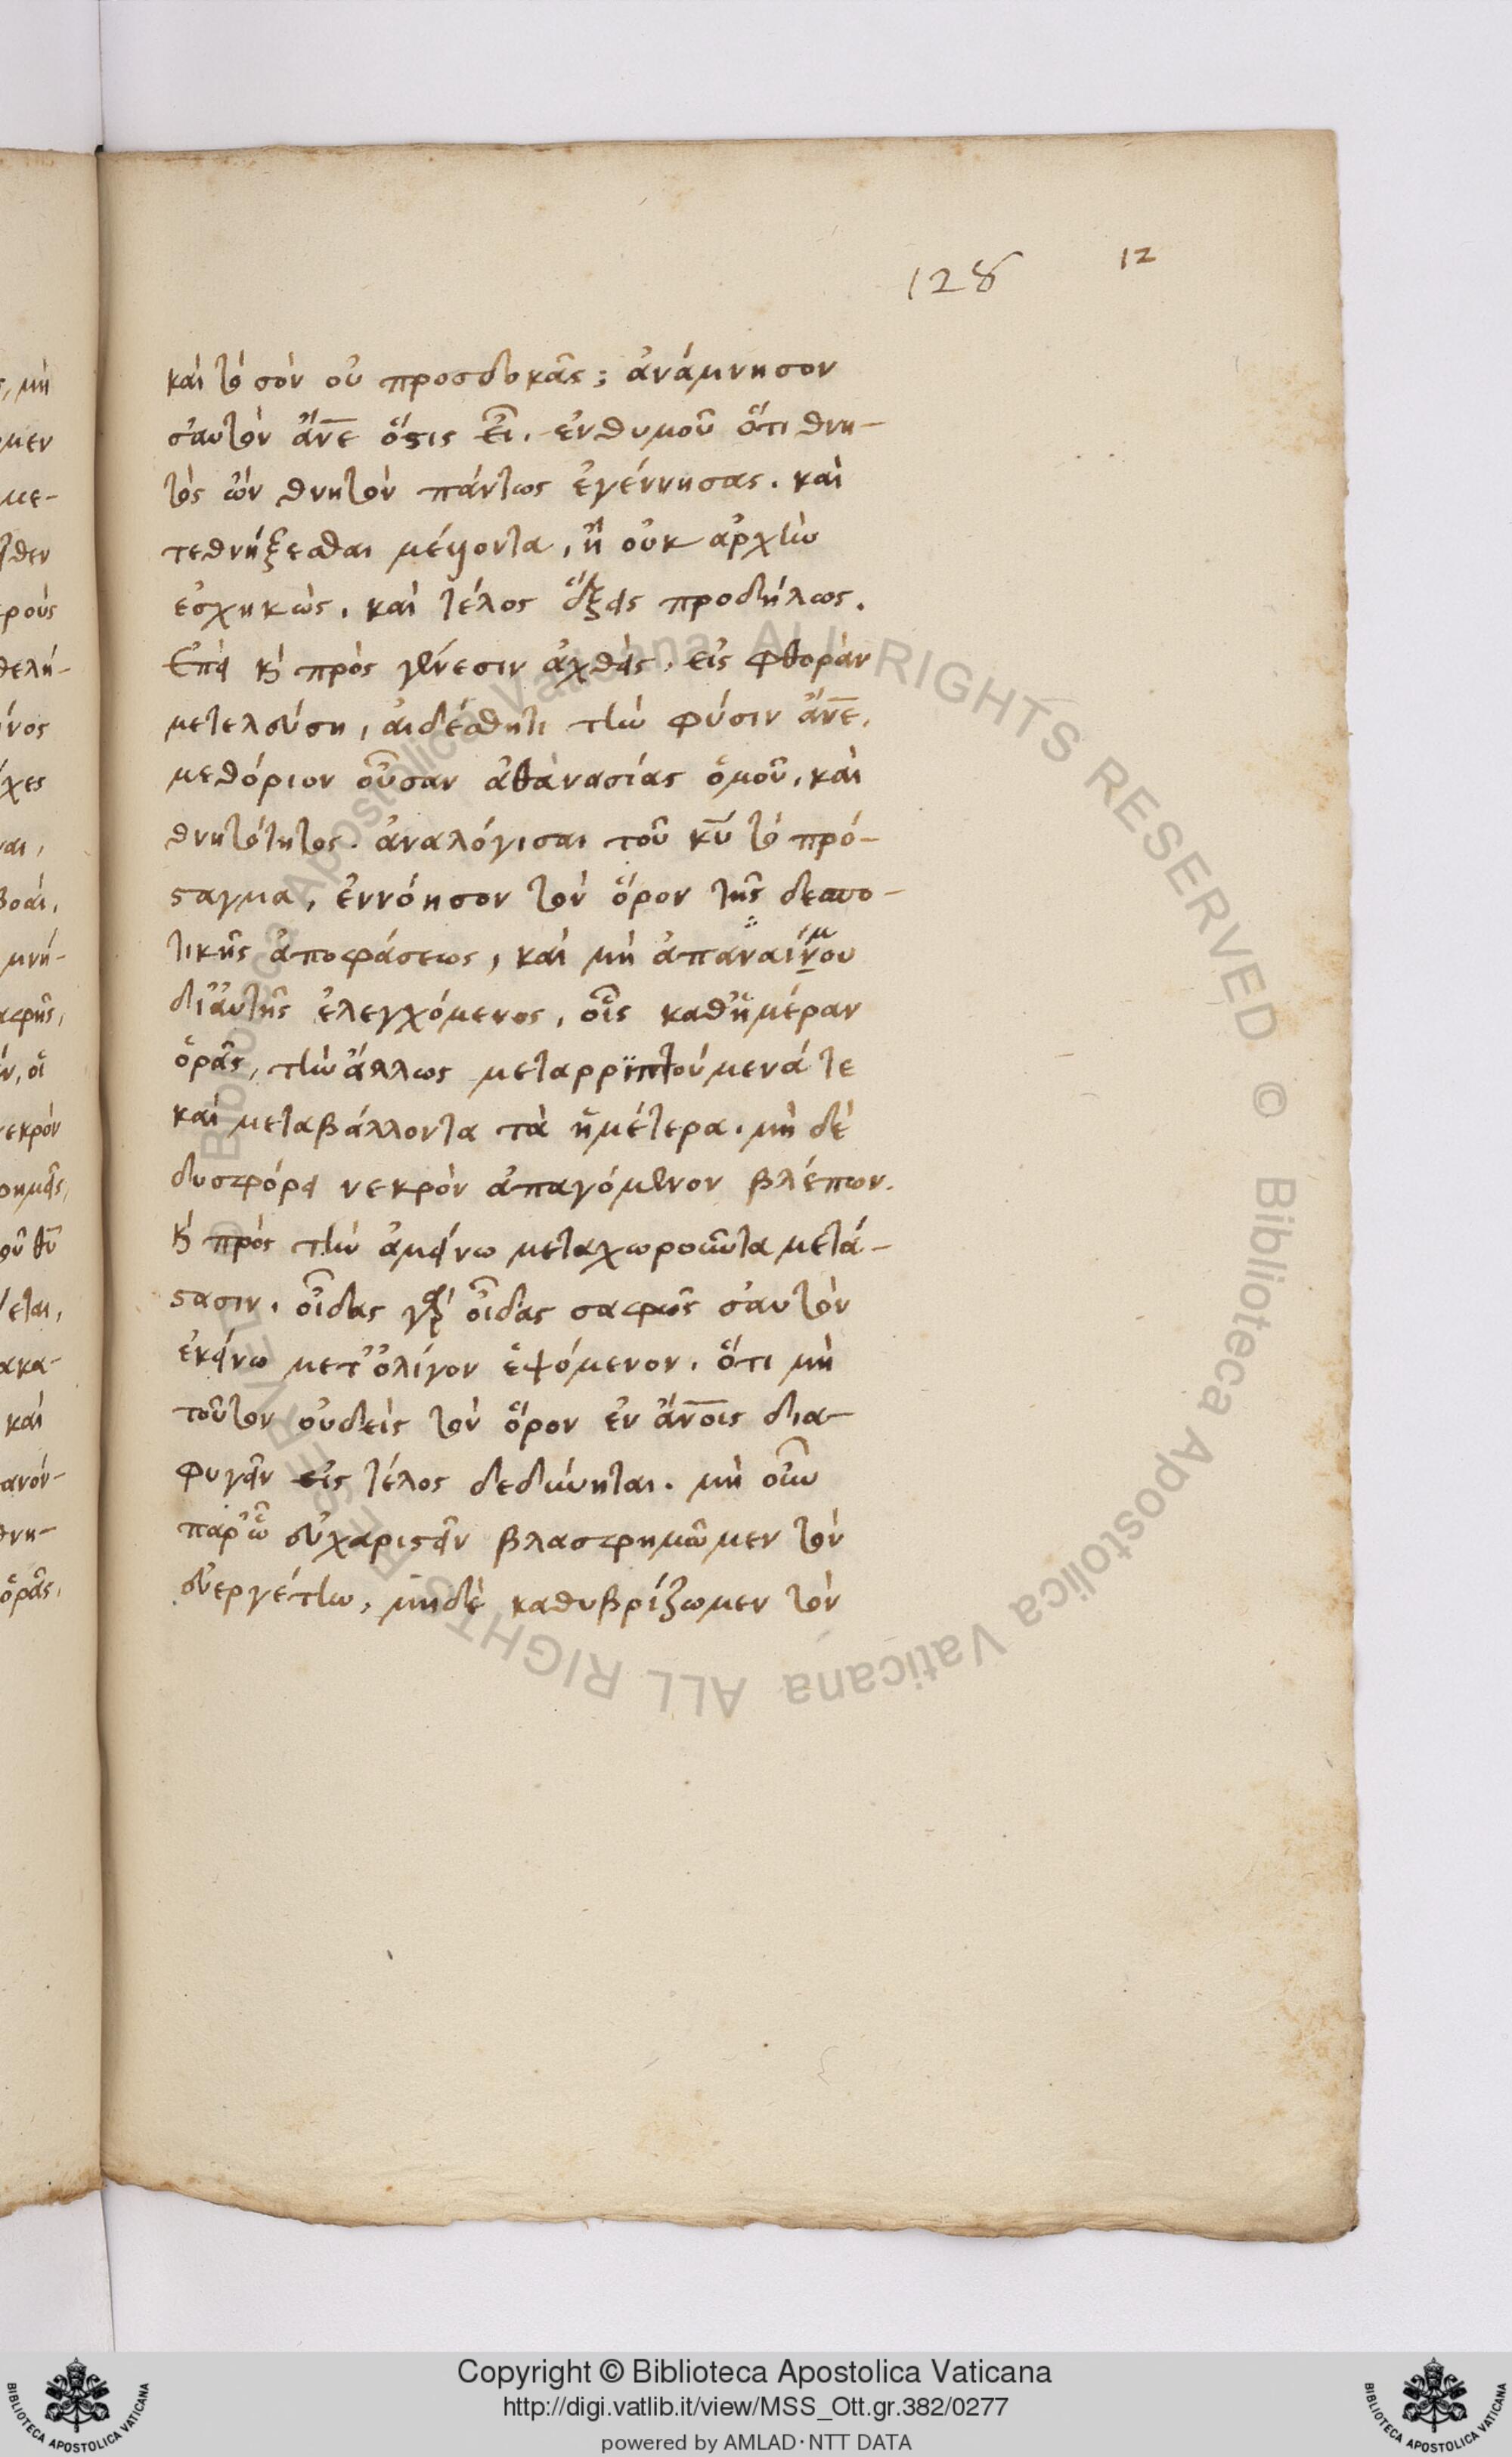 128 12
καὶ τὸ σὸν οὐ προσδοκᾷς; ἀνάμνησον
σαυτὸν ἄνε ὅστις εἶ. ἐνθυμοῦ ὅτι θνη-
τὸς ὢν θνητὸν πάντως ἐγέννησας. καὶ
τεθνήξεσθαι μέλλοντα, ἢ οὐκ ἀρχὴν
ἐσχηκὼς, καὶ τέλος ἕξεις προδήλως.
Ἐπεὶ καὶ πρὸς γένεσιν ἀχθεὶς, εἰς φθορὰν
μετελεύσῃ, αἰδέσθητι τὴν φύσιν ἄνε,
μεθόριον οὖσαν ἀθανασίας ὁμοῦ, καὶ
θνητότητος. ἀναλόγισαι τοῦ κυ τὸ πρό-
σταγμα, ἐννόησον τὸν ὅρον τῆς δεσπο-
τικῆς ἀποφάσεως, καὶ μὴ ἀπαναίνου
δι' αὐτῆς ἐλεγχόμενος, οἷς καθ' ἡμέραν
ὁρᾷς, τὴν ἄλλως μεταρριπτούμενά τε
καὶ μεταβάλλοντα τὰ ἡμέτερα. μὴ δὲ
δυσφόρει νεκρὸν ἀπαγόμενον βλέπων.
καὶ πρὸς τὴν ἀμείνω μεταχωροῦντα μετά-
στασιν. οἶδας γὰρ οἶδας σαφῶς σαυτὸν
ἐκείνω μετ' ὀλίγον ἑψόμενον. ὅτι μὴ
τοῦτον οὐδεὶς τὸν ὅρον ἐν ἄνοις δια-
φυγεῖν εἰς τέλος δεδύνηται. μὴ οὖν
παρ' ᾧ εὐχαριστεῖν βλασφημῶμεν τὸν
εὐεργέτην, μηδὲ καθυβρίζωμεν τὸν
Copyright © Biblioteca Apostolica Vaticana
http://digi.vatlib.it/view/MSS_Ott.gr.382/0277
powered by AMLAD·NTT DATA